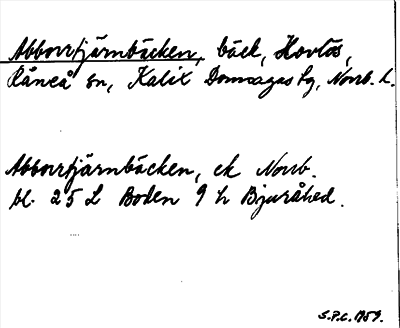 Abborrtjärnbäcken, bäck, Hovlös,
Råneå sn, Kalix Domsagas tg, Norrb. l.
Abborrtjärnbäcken, ek Norrb.
bl. 25 L Boden 9 h Bjuråhed.
S.P.C. 1959.